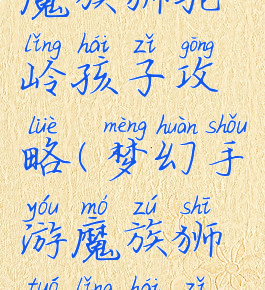 魔族狮驼
lǐng hái zǐ gōng
岭孩子攻
lüè mèng huàn shǒu
略(梦幻手
yóu mó zú shī
游魔族狮
tuó lǐng hái zǐ